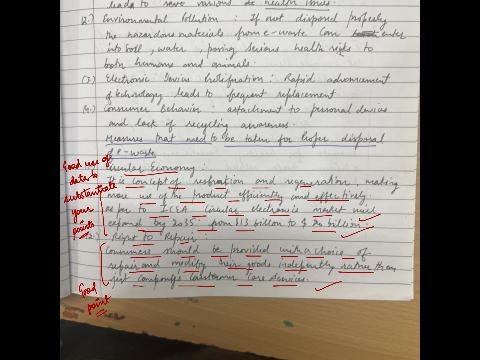 leads to various health issues.
(2.) Environmental Pollution : If not disposed properly
the hazardous materials from e-waste can enter
into soil, water, posing serious health risks to
both humans and animals.
(3) Electronic Device Proliferation : Rapid advancement
of technology leads to frequent replacement
(4.) Consumer Behavior : attachment to personal devices
and lack of recycling awareness.
Measures that need to be taken for proper disposal
of e-waste
Circular Economy :
It is concept of restoration and regeneration, making
more use of the product efficiently and effectively.
as per to ICEA circular electronics market will
expand by 2035 from $13 billion to $ billion.
Right to Repair :
Consumers should be provided with a choice of
repair and modify their goods independently rather than
just companies customer care devices.
Good use of
data to
substantiate
your
points
Good
point